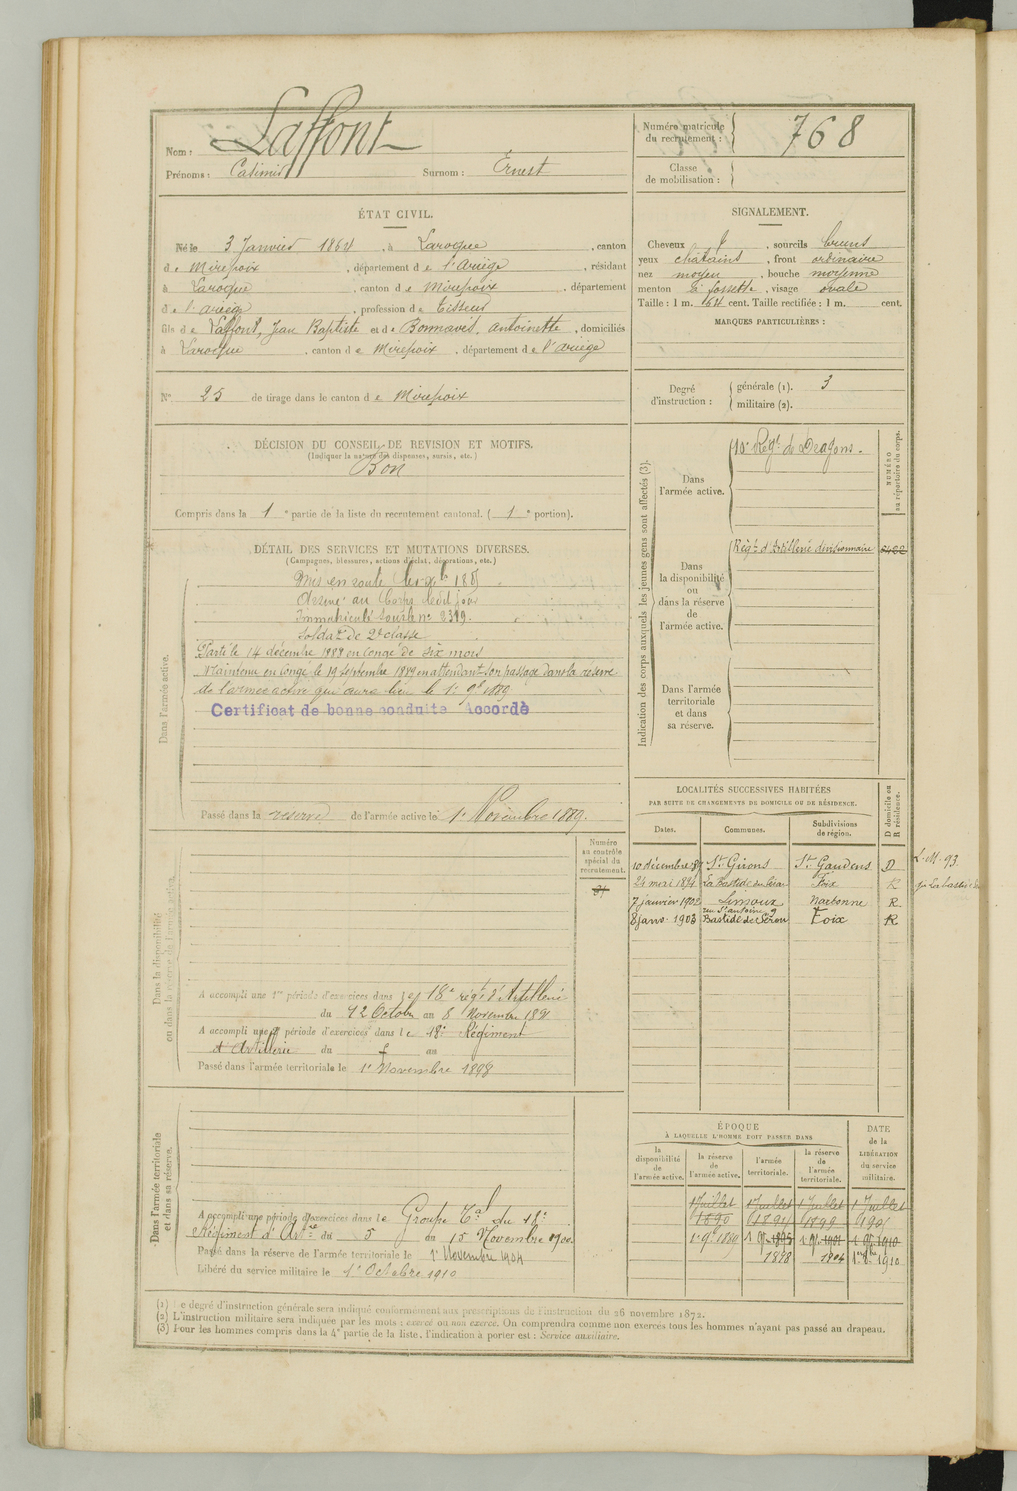 Nom : Laffont
Prénoms : Casimir Surnom : Ernest
Numéro matricule du recrutement : 768
Classe de mobilisation :
ÉTAT CIVIL.
Né le 3 Janvier 1864, à Laroque, canton
de Mirepoix, département de l'ariège, résidant
à Laroque, canton de Mirepoix, département
de l'ariège, profession de tisseur
fils de Laffont, Jean Baptiste et de Bonnavid, antoinette, domiciliés
à Laroque, canton de Mirepoix, département de l'ariège
N° 25 de tirage dans le canton de Mirepoix
SIGNALEMENT.
Cheveux , sourcils bruns
yeux chatains, front ordinaire
nez moyen, bouche moyenne
menton à fossette, visage ovale
Taille : 1 m. 64 cent. Taille rectifiée : 1 m. cent.
MARQUES PARTICULIÈRES :
Degré d'instruction : générale (1). 3
militaire (2).
DÉCISION DU CONSEIL DE REVISION ET MOTIFS.
(Indiquer la nature des dispenses, sursis, etc.)
Bon
Compris dans la 1e partie de la liste du recrutement cantonal. (1e portion).
DÉTAIL DES SERVICES ET MUTATIONS DIVERSES.
(Campagnes, blessures, actions d'éclat, décorations, etc.)
Dans l'armée active.
Mis en route le 188
Arrivé au Corps ledit jour
Immatriculé sous le n° 2319.
Soldat de 2e classe
Parti le 14 décembre 1888 en congé de six mois
Maintenu en congé le 19 septembre 1889 en attendant son passage dans la réserve
de l'armée active qui aura lieu le 1er 9bre 1889
Certificat de bonne conduite Accordé
Passé dans la réserve de l'armée active le 1er Novembre 1889.
Indication des corps auxquels les jeunes gens sont affectés (3).
NUMÉRO au répertoire du corps.
Dans l'armée active.
10e Régt de Dragons.
Dans la disponibilité ou dans la réserve de l'armée active.
Régt d'Artillerie divisionnaire
Dans l'armée territoriale et dans sa réserve.
LOCALITÉS SUCCESSIVES HABITÉES
PAR SUITE DE CHANGEMENTS DE DOMICILE OU DE RÉSIDENCE.
Dates. Communes. Subdivisions de région. D domicile ou R résidence.
10 décembre 89 St Girons St Gaudens D
24 mai 1894 La Bastide de Sérou Foix R
7 janvier 1902 Limoux Narbonne R
rue St antoine 9
8 janv. 1903 Bastide de Sérou Foix R
L. M. 93
Dans la disponibilité ou dans la réserve de l'armée active.
Numéro au contrôle spécial du recrutement.
A accompli une 1re période d'exercices dans le 18e régt d'Artillerie
du 12 Octobre au 8 Novembre 1891
A accompli une 2e période d'exercices dans le 18e Régiment
d'Artillerie du au
Passé dans l'armée territoriale le 1er Novembre 1898
Dans l'armée territoriale et dans sa réserve.
A accompli une période d'exercices dans le Groupe Tal du 18e
Régiment d'Artie du 5 au 15 Novembre 1900.
Passé dans la réserve de l'armée territoriale le 1er Novembre 1904
Libéré du service militaire le 1er Octobre 1910
ÉPOQUE
À LAQUELLE L'HOMME DOIT PASSER DANS
la disponibilité de l'armée active. la réserve de l'armée active. l'armée territoriale. la réserve de l'armée territoriale. DATE de la LIBÉRATION du service militaire.
1 Juillet 1890 1 Juillet 1894 1 Juillet 1899 1 Juillet 1905
1er 9bre 1889
1898 1904 1910
(1) Le degré d'instruction générale sera indiqué conformément aux prescriptions de l'instruction du 26 novembre 1872.
(2) L'instruction militaire sera indiquée par les mots : exercé ou non exercé. On comprendra comme non exercés tous les hommes n'ayant pas passé au drapeau.
(3) Pour les hommes compris dans la 4e partie de la liste, l'indication à porter est : Service auxiliaire.